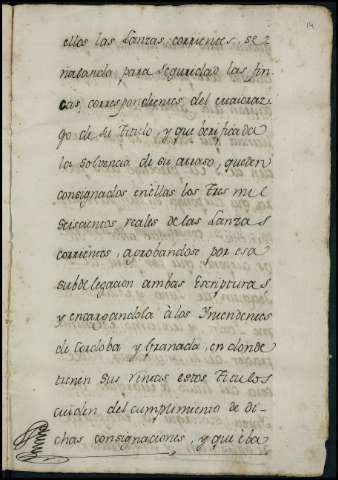 14
ellos las Lanzas corrientes, se-
ñalando para seguridad las fin-
cas, correspondientes del maioraz-
go de su Titulo, y que berificada
la solvencia de su atraso, queden
consignados en ellas los tres mil
seiscientos reales de las Lanzas
corrientes, aprobandose por esa
subdelegacion ambas Escripturas
y encargandola à los Yntendentes
de Cordoba y Granada, en donde
tienen sus rentas estos Titulos
cuiden del cumplimiento de di-
chas consignaciones, y que